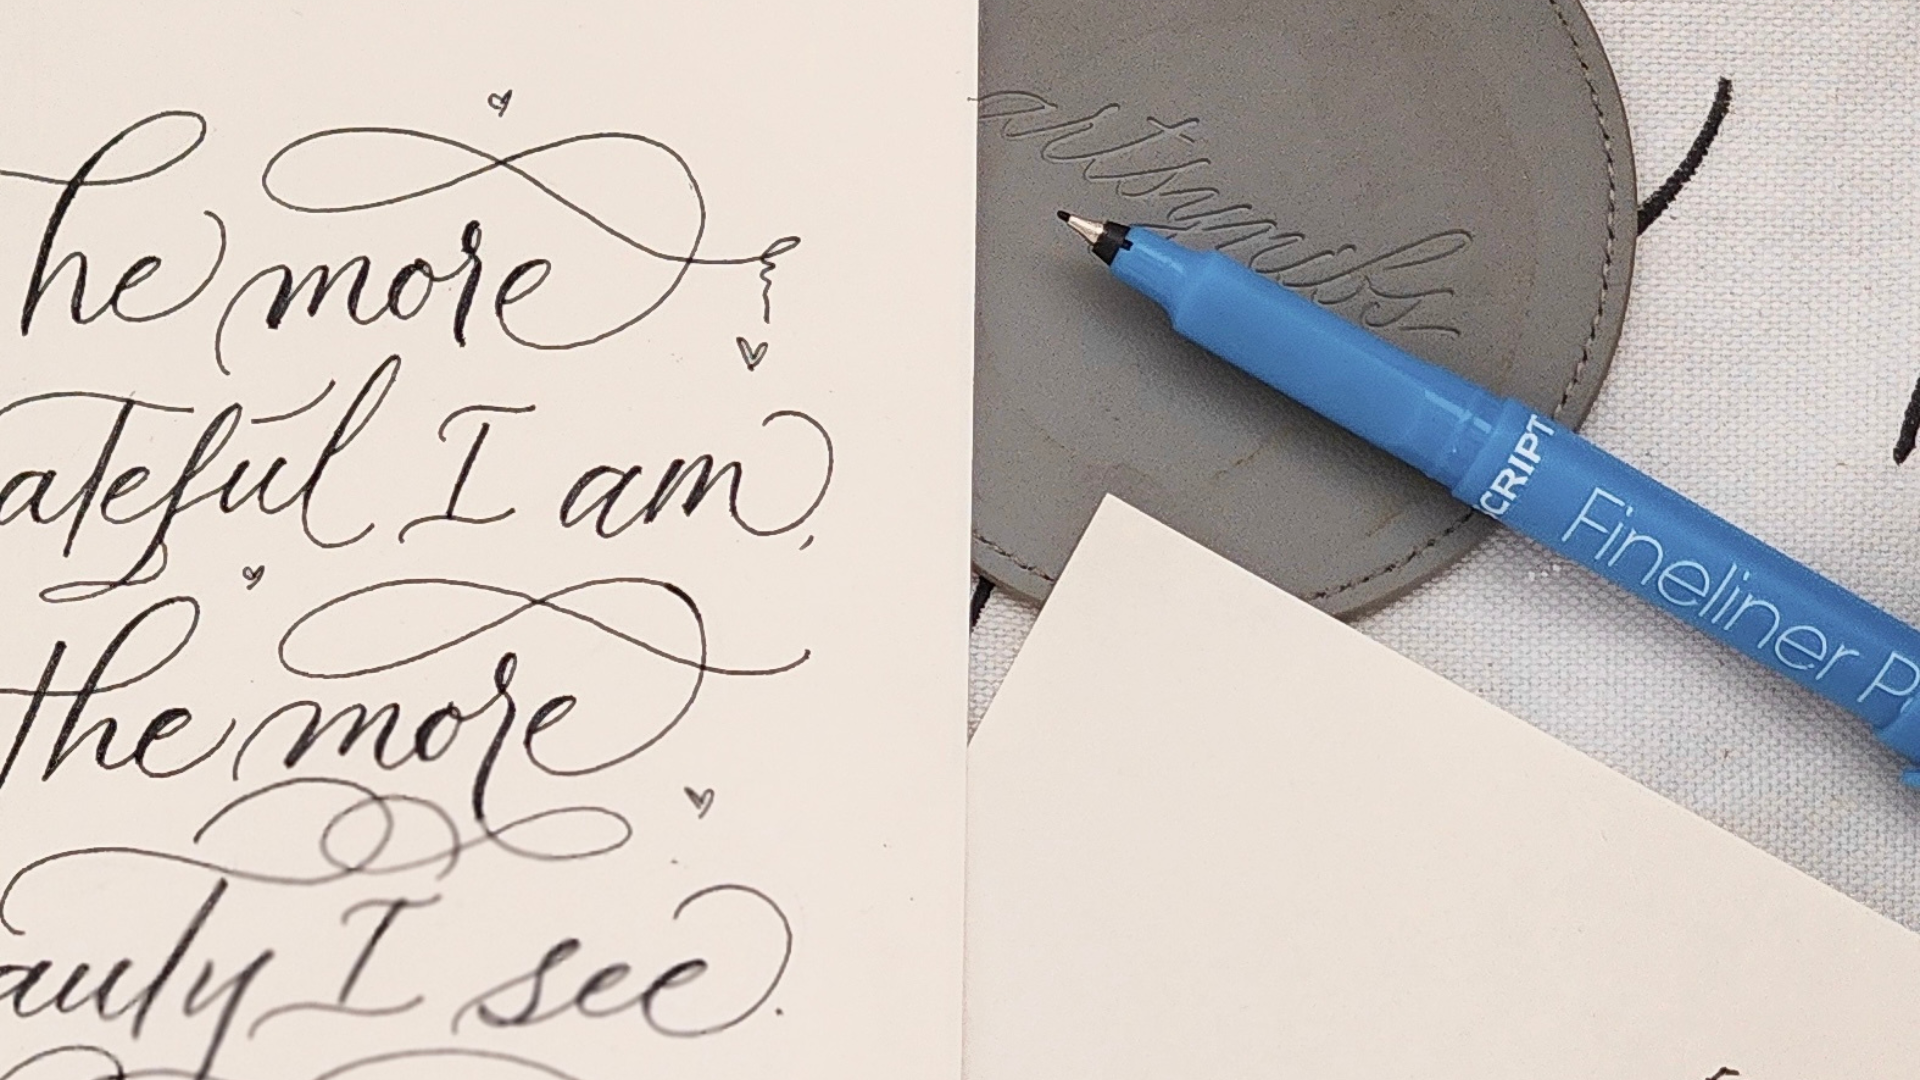 he more
ateful I am,
the more
auty I see.
artsynibs
CRIPT
Fineliner P